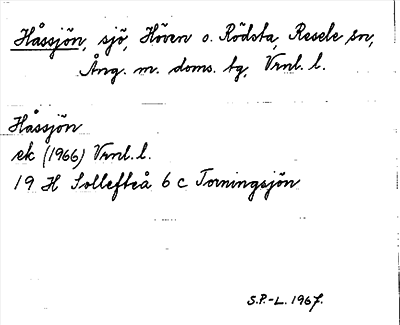 Håssjön, sjö, Höven o. Rödsta, Resele sn,
Ång. m. doms. bg, Vrnl. l.
Håssjön
ek (1966) Vrnl. l.
19 H Sollefteå 6 c Torningsjön
S.P.-L. 1967.